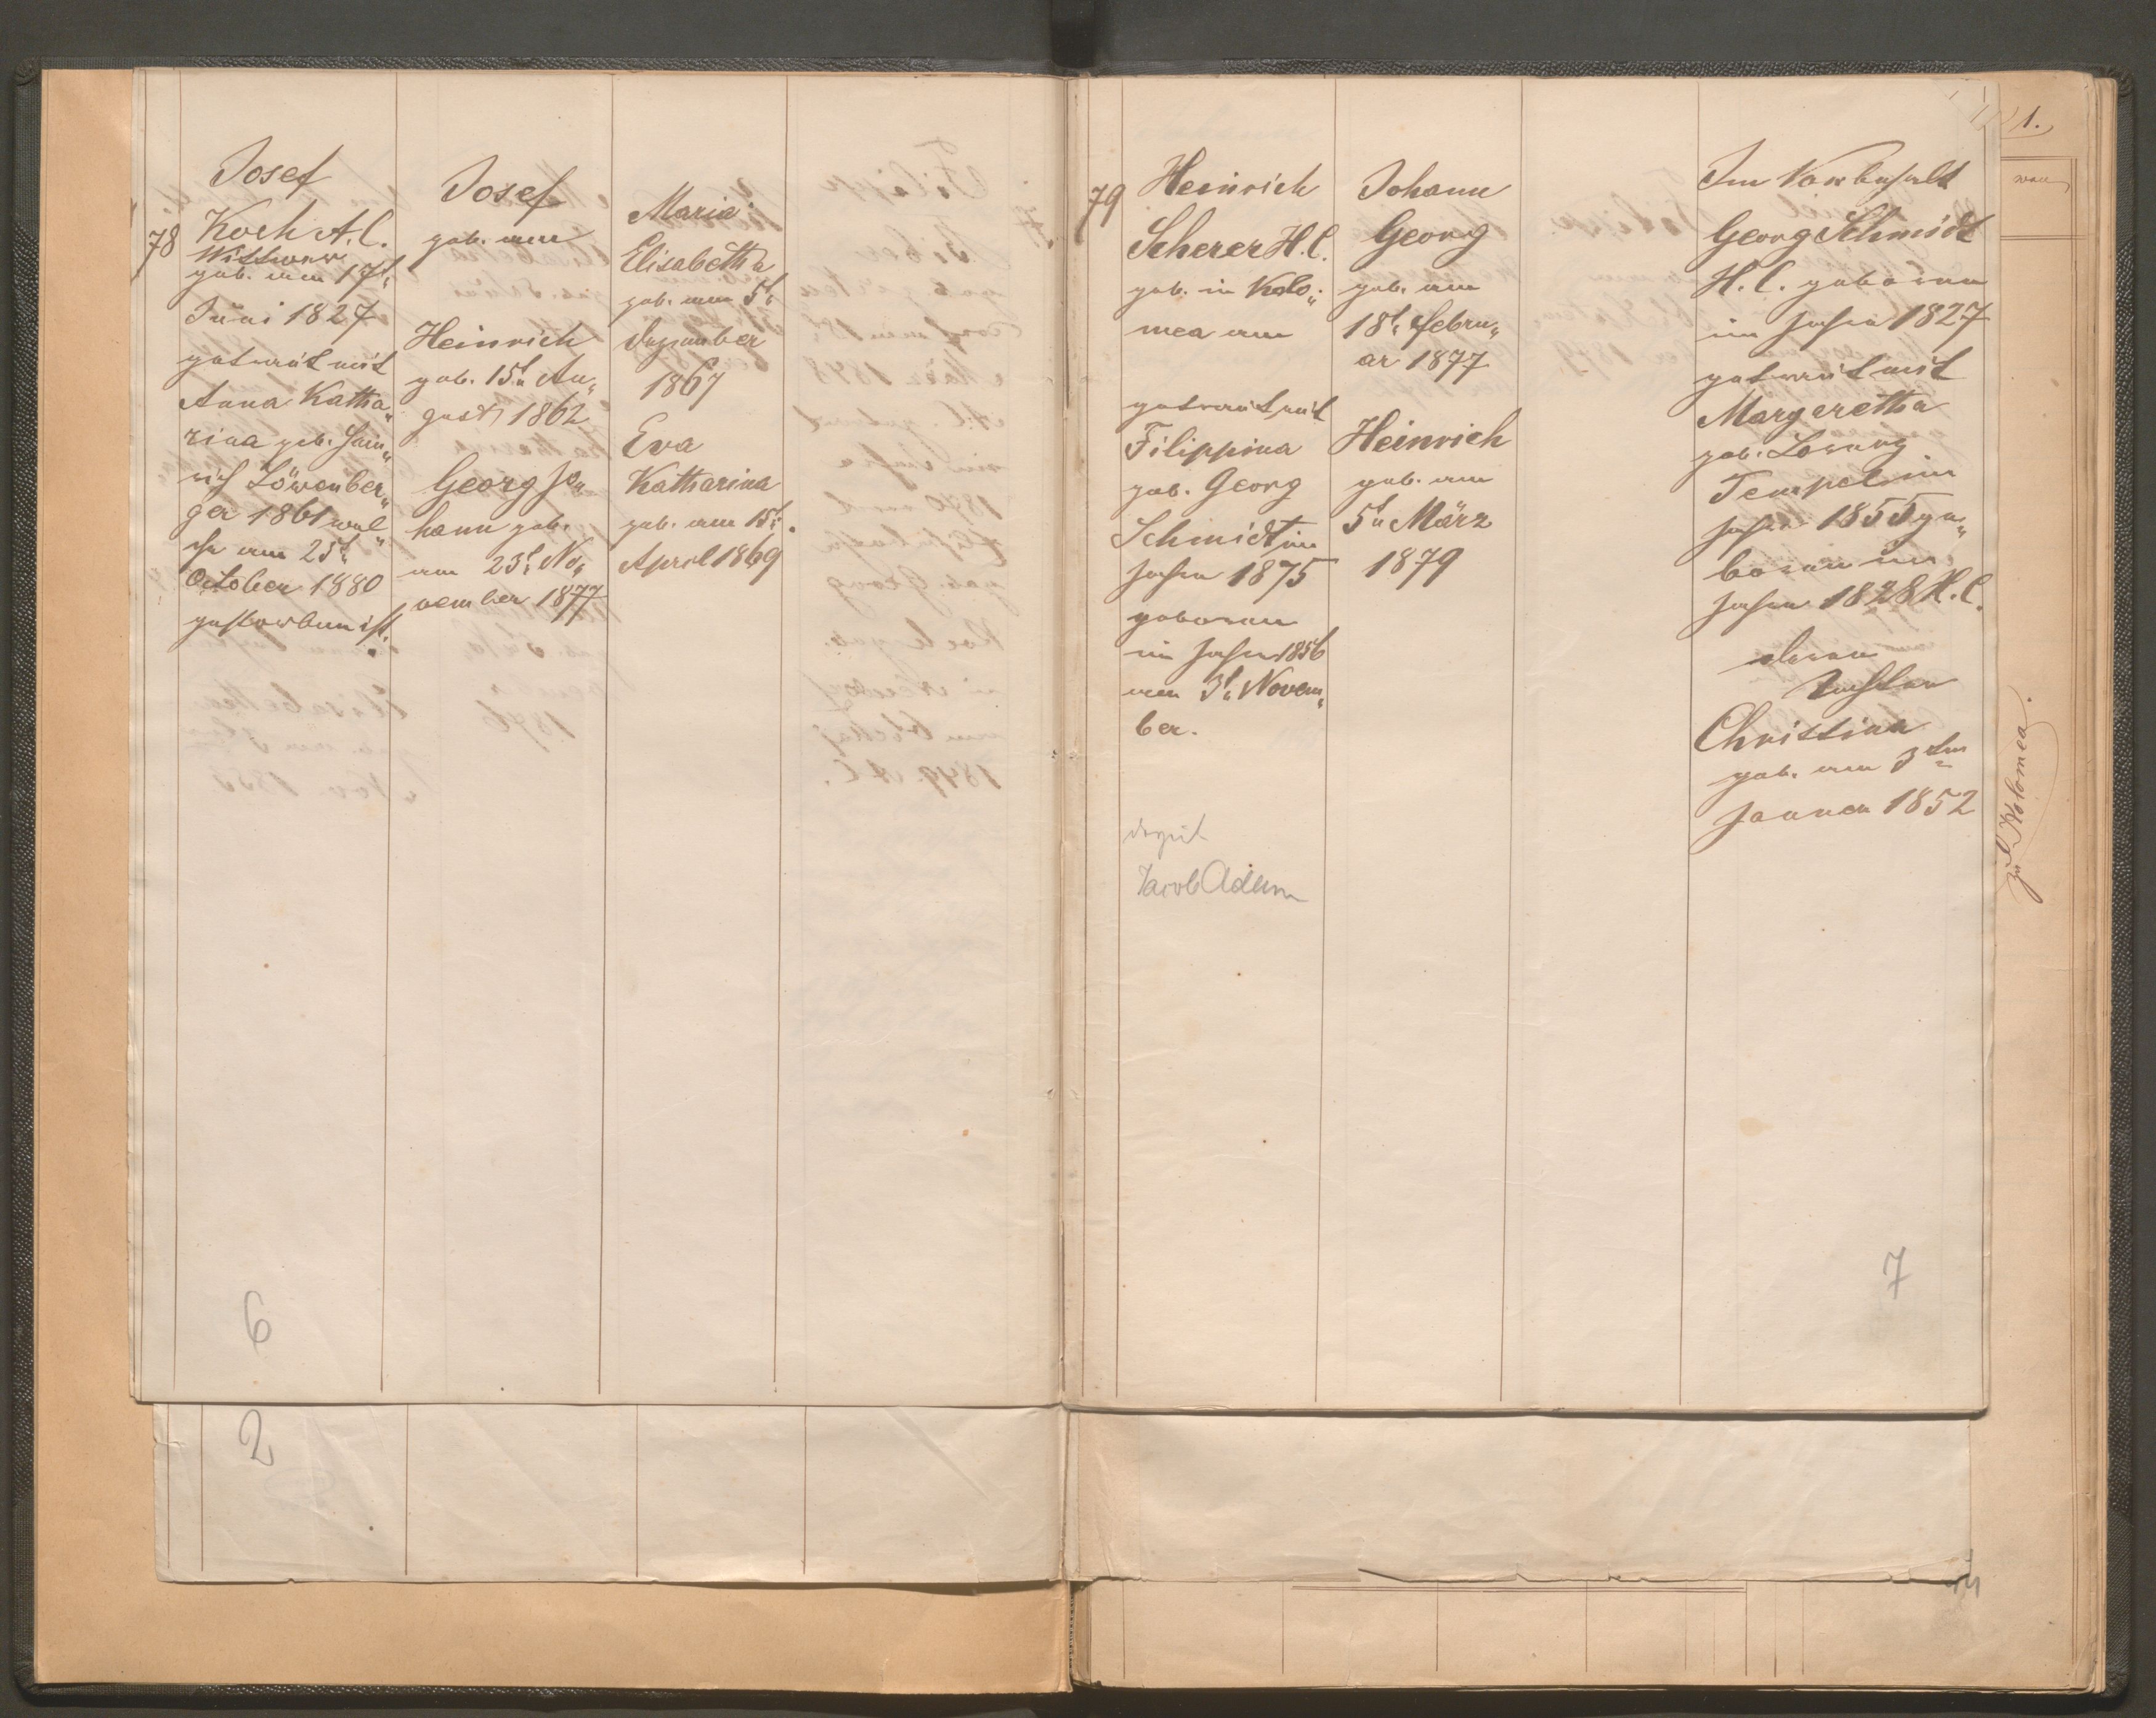 78
Josef
Koch A.C.
Wittwer
geb. am 17t„
Juni 1827
getraut mit
Anna Katha„
rina geb. Hein„
rich Löwenber„
ger 1861 wel„
che am 25t„
October 1880
gestorben ist.
Josef
geb. am
Heinrich
geb. 15t„ Au„
gust 1862
Georg Jo„
hann geb.
am 23t„ No„
vember 1877
Maria
Elisabetha
geb. am 5t„
Dezember
1867
Eva
Katharina
geb. am 15t„
April 1869
6
2
79
Heinrich
Scherer H.C.
geb. in Kolo„
mea am
getraut mit
Filippina
geb. Georg
Schmidt im
Jahre 1875
geboren
im Jahre 1856
am 3t„ Novem„
ber.
Jacob Adam
Johann
Georg
geb. am
18t„ Febru„
ar 1877
Heinrich
geb. am
5t„ März
1879
Im Vorbehalt
Georg Schmidt
H.C. geboren
im Jahre 1827
getraut mit
Margaretha
geb. Lorenz
Tempel im
Jahre 1855 ge„
boren im
Jahre 1828 H.C.
deren
Tochter
Christina
geb. am 3ten
Januar 1852
7
1.
zu Kolomea.